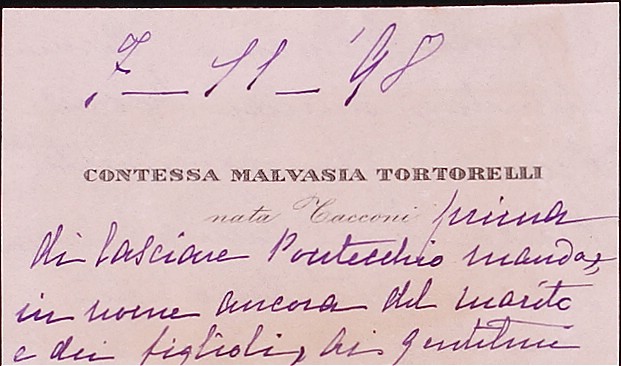 7 – 11 – '98
CONTESSA MALVASIA TORTORELLI
nata Tacconi prima
di lasciare Pontecchio manda,
in nome ancora del marito
e dei figlioli, ai gentilmi